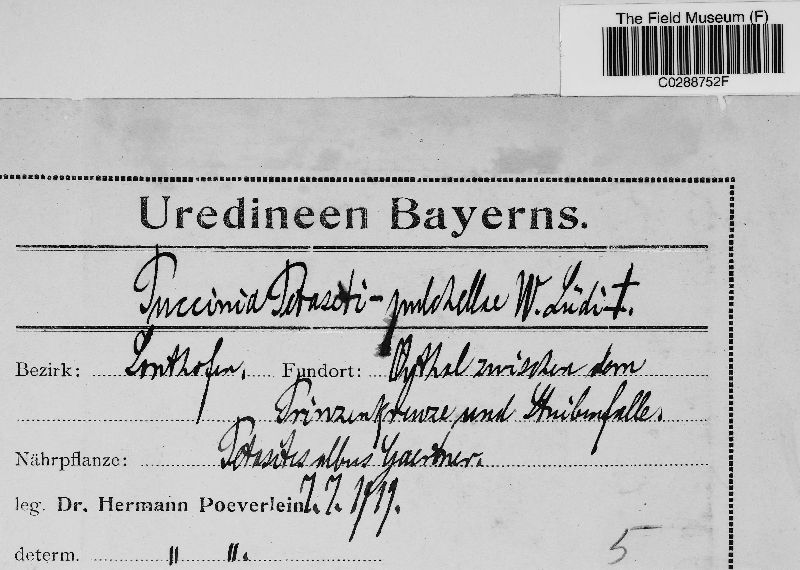 The Field Museum (F)
C0288752F
Uredineen Bayerns.
Puccinia Petasiti-pulchellae W. Lüdi †.
Bezirk: Sonthofen. Fundort: Oythal zwischen dem
Prinzenkreuze und Stuibenfalle.
Nährpflanze: Petasites albus Gaertner.
leg. Dr. Hermann Poeverlein 7.7.1919.
determ. " ".
5